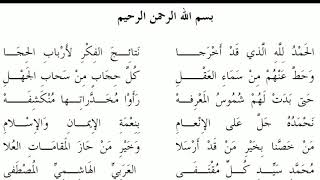 بسم الله الرحمن الرحيم
الحَمْدُ للهِ الَّذي قَدْ أَخْرَجَا نَتَائِجَ الفِكْرِ لأَرْبَابِ الحِجَا
وَحَطَّ عَنْهُمْ مِنْ سَمَاءِ العَقْلِ كُلَّ حِجَابٍ مِنْ سَحَابِ الجَهْلِ
حَتَّى بَدَتْ لَهُمْ شُمُوسُ المَعْرِفَهْ رَأَوْا مُخَدَّرَاتِهَا مُنْكَشِفَهْ
نَحْمَدُهُ جَلَّ عَلى الإِنْعَامِ بِنِعْمَةِ الإِيمَانِ وَالإِسْلامِ
مَنْ خَصَّنَا بِخَيْرِ مَنْ قَدْ أُرْسِلَا وَخَيْرِ مَنْ حَازَ المَقَامَاتِ العُلا
مُحَمَّدٍ سَيِّدِ كُلِّ مُقْتَفَى العَرَبيِّ الهَاشِمِيِّ المُصْطَفَى